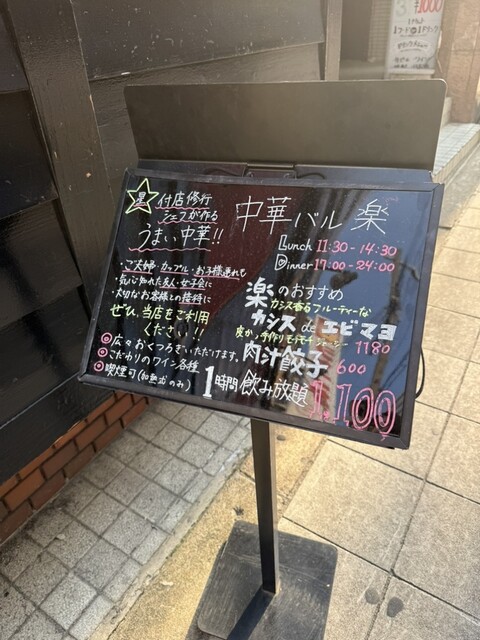 星付店修行
シェフが作る
うまい中華!!
・ご夫婦・カップル・お子様連れも
・気心知れた友人・女子会に
・大切なお客様との接待に
ぜひ、当店をご利用
ください!!
◎広々おくつろぎいただけます。
◎こだわりのワイン各種
◎喫煙可(加熱式のみ)
中華バル 楽
Lunch 11:30-14:30
Dinner 17:00-24:00
楽のおすすめ
カシス香るフルーティーな
カシス de エビマヨ
1180
皮から手作りモチモチジューシー
肉汁餃子 600
1時間飲み放題 1,100
¥1000